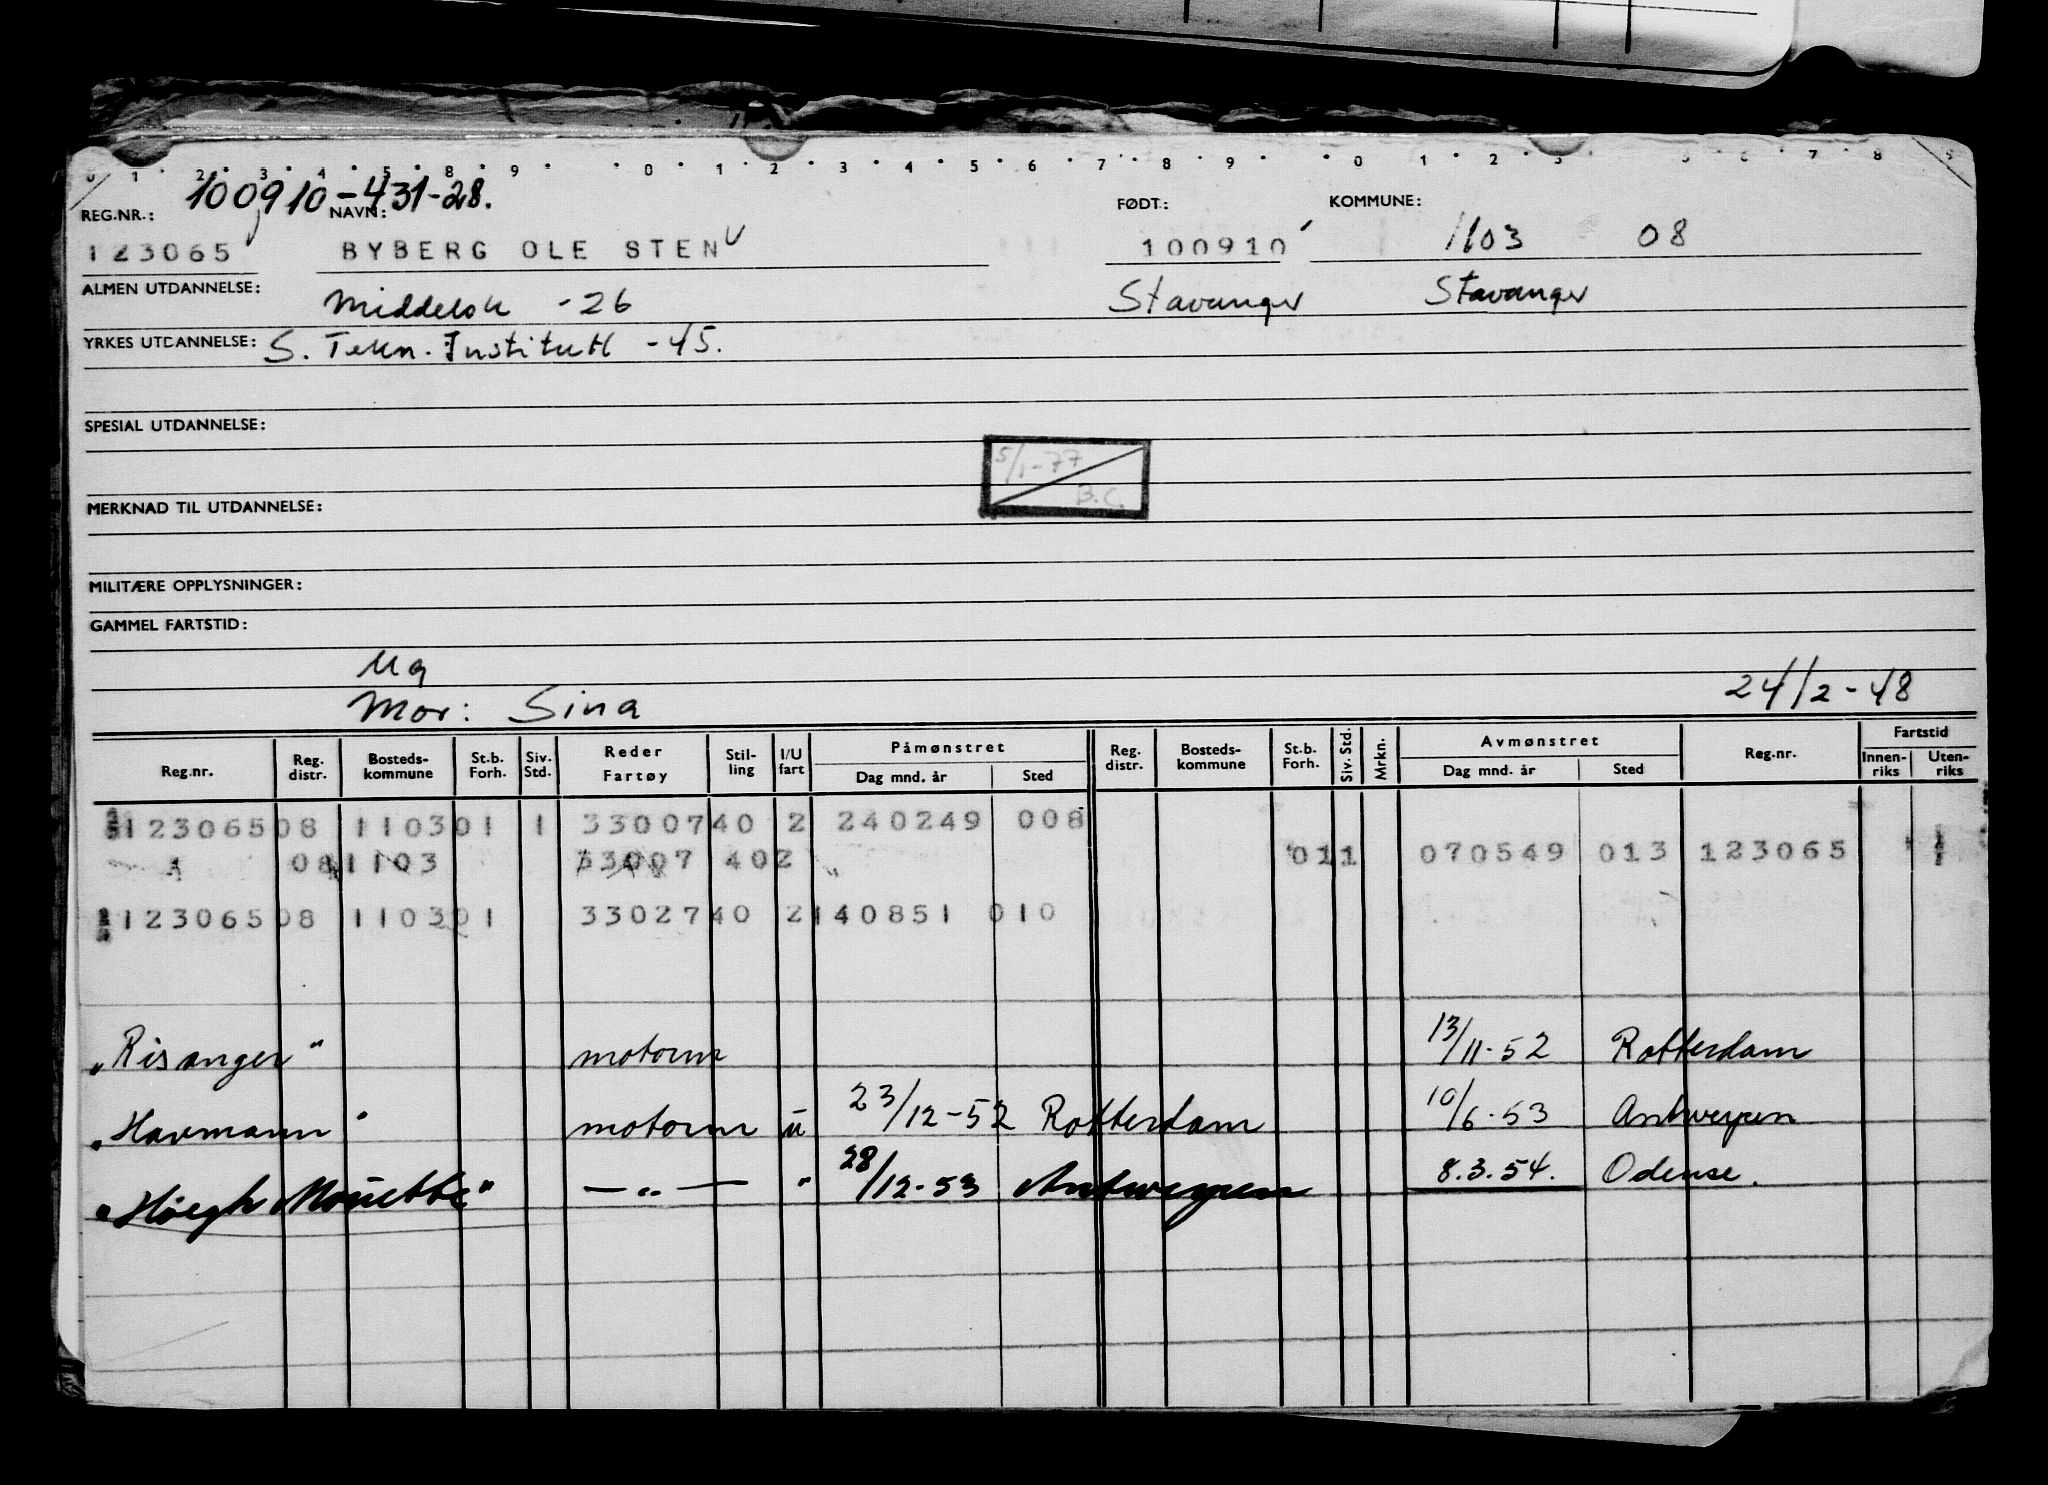 0 1 2 3 4 5 8 9 0 1 2 3 4 5 6 7 8 9 0 1 2 3 5 6 7 8 9
100910-431-28.
REG.NR.: NAVN: FØDT: KOMMUNE:
123065 BYBERG OLE STEN 100910 1103 08
ALMEN UTDANNELSE: Middelsk -26 Stavanger Stavanger
YRKES UTDANNELSE: S. Tekn. Institutt -45.
SPESIAL UTDANNELSE:
5/1-77
B.C.
MERKNAD TIL UTDANNELSE:
MILITÆRE OPPLYSNINGER:
GAMMEL FARTSTID:
Ug
Mor: Sina 24/2-48
Reg.nr. Reg. distr. Bosteds-kommune St.b. Forh. Siv. Std. Reder Fartøy Stil-ling I/U fart Påmønstret Dag mnd. år Sted Reg. distr. Bosteds-kommune St.b. Forh. Siv. Std. Mrkn. Avmønstret Dag mnd. år Sted Reg.nr. Fartstid Innen-riks Uten-riks
123065 08 1103 01 1 33007 40 2 240249 008
08 1103 33007 40 2 011 070549 013 123065
123065 08 1103 01 33027 40 2 140851 010
"Risanger" motorm 13/11-52 Rotterdam
"Havmann" motorm u 23/12-52 Rotterdam 10/6-53 Antwerpen
"Höegh Mouette" —"— " 28/12-53 Antwerpen 8.3.54. Odense.